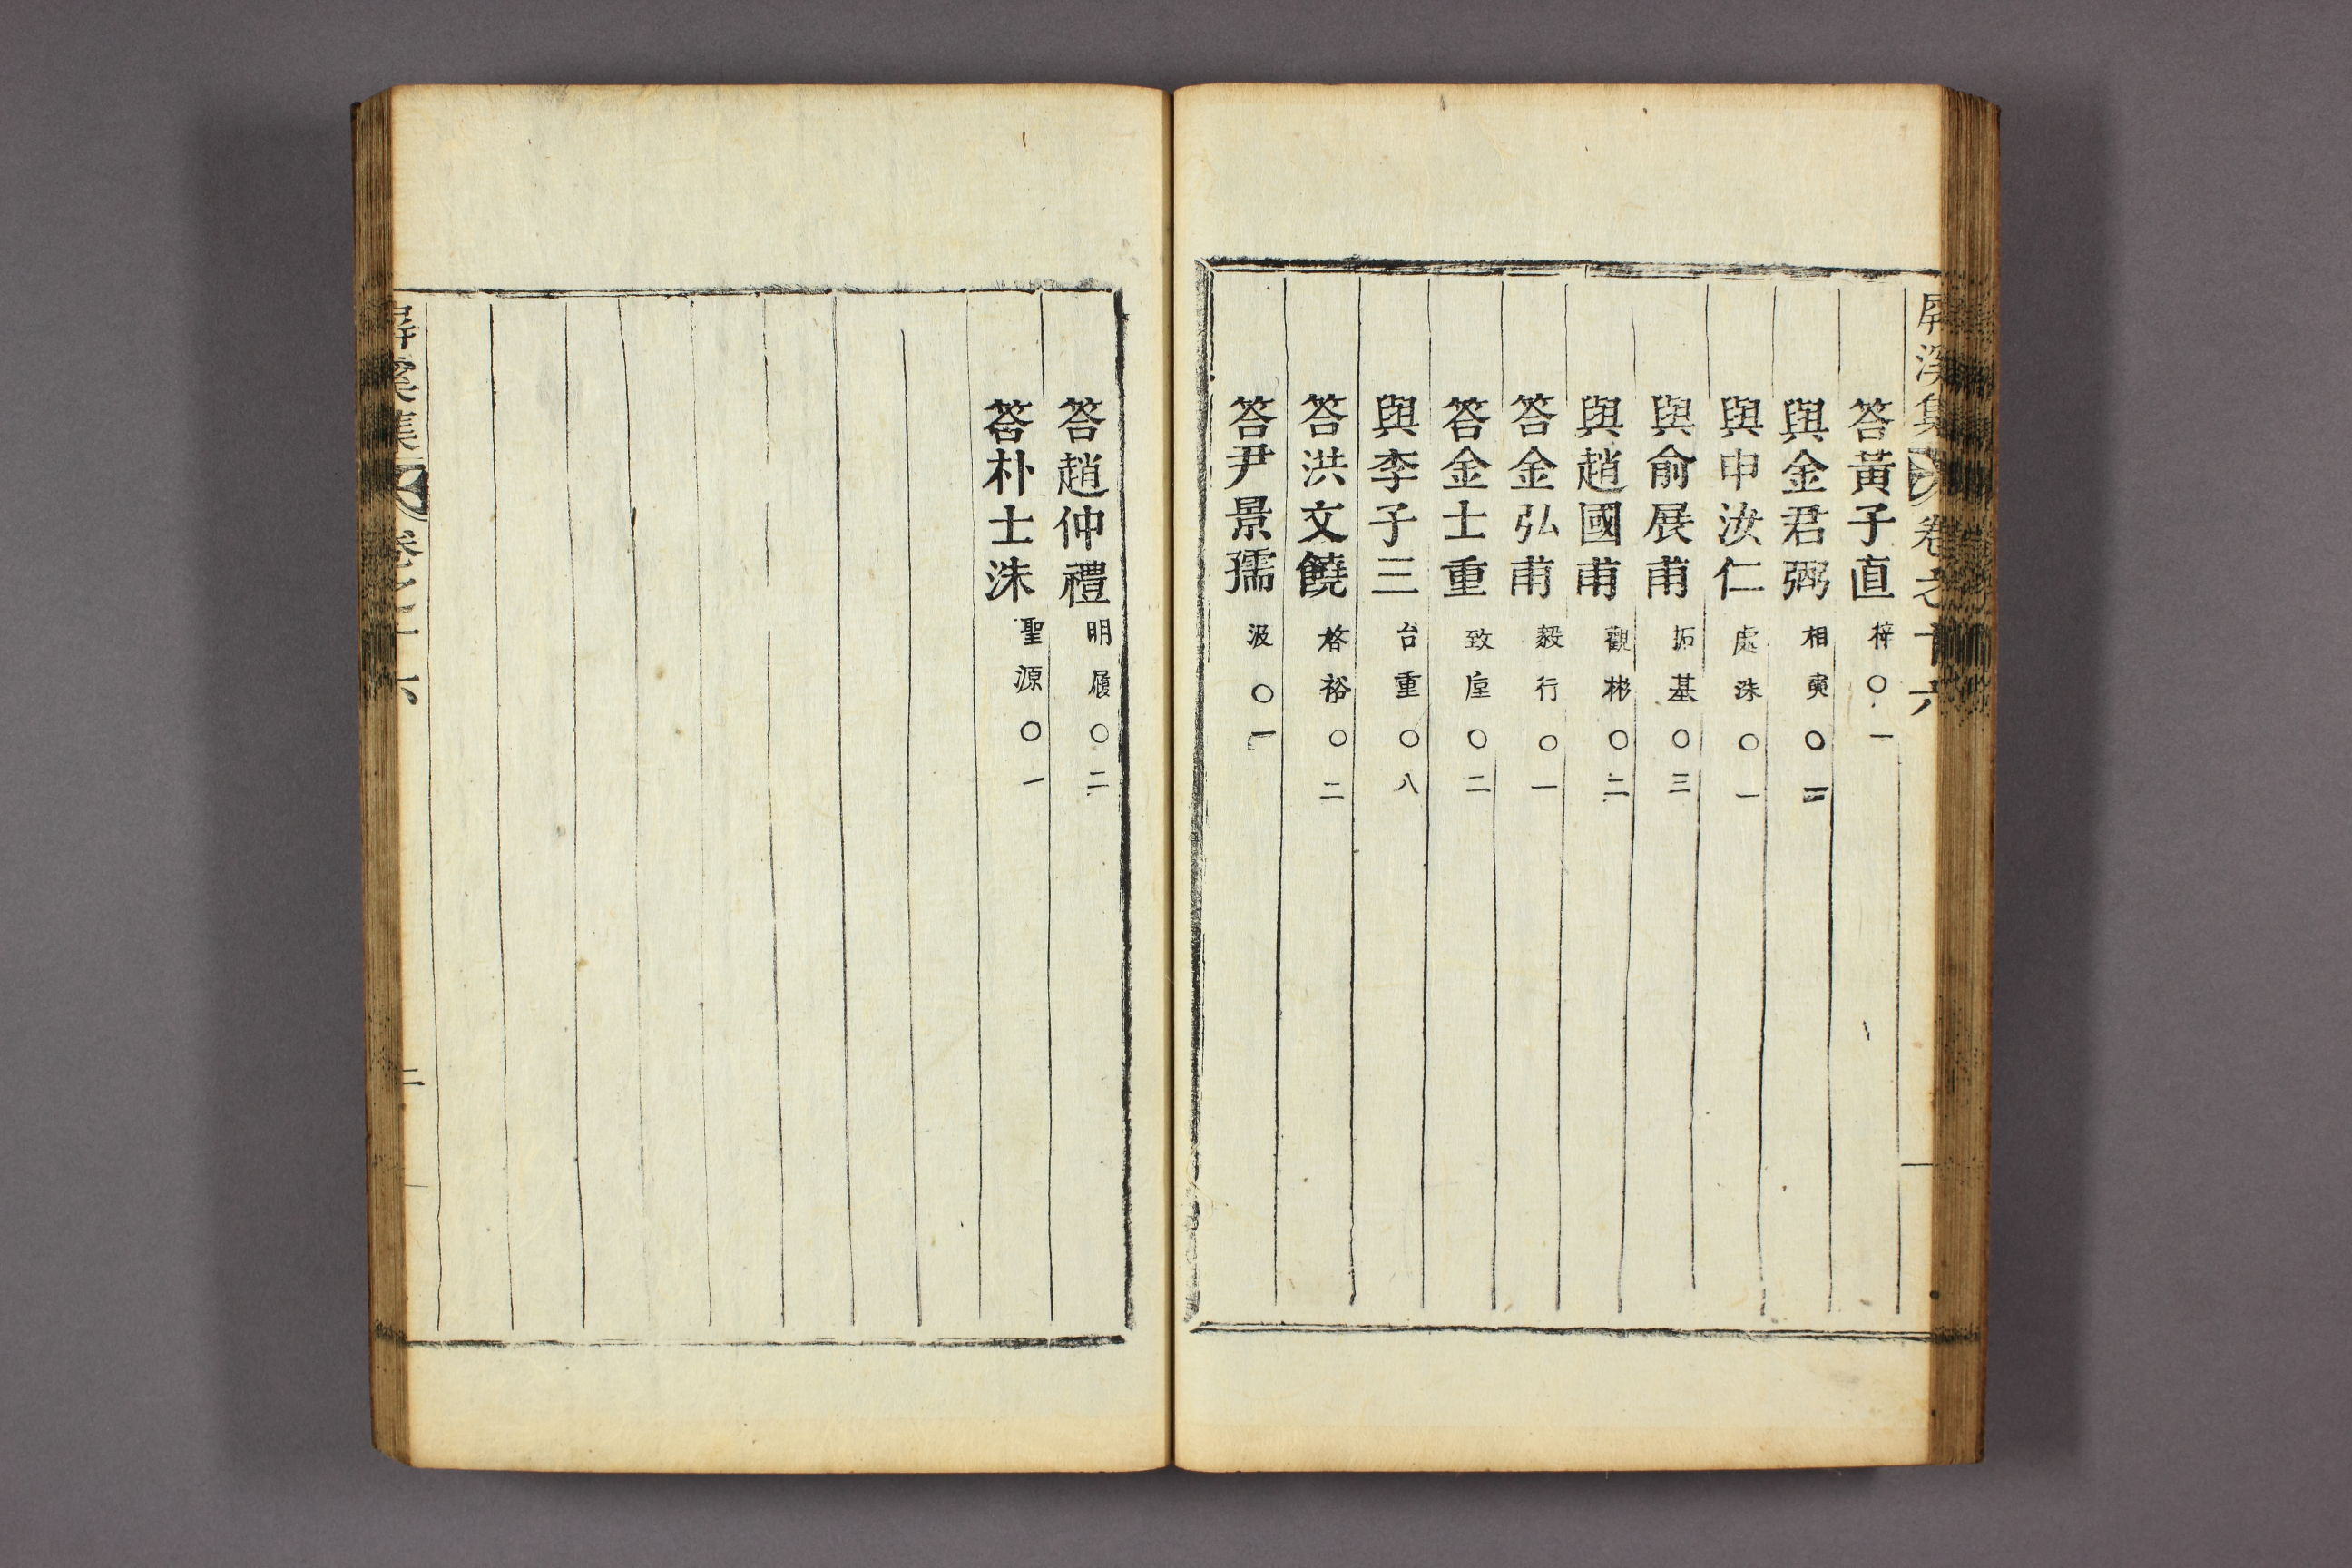 屛溪集 卷之十六
答黃子直 梓〇一
與金君弼 相奭〇二
與申汝仁 處洙〇一
與俞展甫 拓基〇三
與趙國甫 觀彬〇二
答金弘甫 毅行〇一
答金士重 致垕〇二
與李子三 台重〇八
答洪文饒 啓裕〇二
答尹景孺 汲〇一
答趙仲禮 明履〇二
答朴士洙 聖源〇一
屛溪集 卷之十六 二